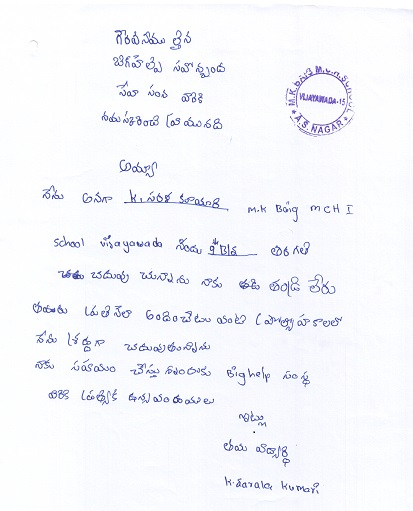 గౌరవనీయులైన
బిగ్‌హెల్ప్ సహోన్నంద
సేవా సంస్థ వారికి
నమస్కరించి వ్రాయునది
M.K. BAIG M.C.H. SCHOOL
VIJAYAWADA-15
* A.S NAGAR *
అయ్యా
నేను అనగా K. సరళ కుమారి M.K Baig MCH I
school vijayawada నందు 9th B/s తరగతి
చదువు చున్నాను నాకు తండ్రి లేరు
తమరు ప్రతినెలా అందించేటు వంటి ప్రోత్సాహకాలలో
నేను శ్రద్ధగా చదువుతున్నాను
నాకు సహాయం చేస్తు నందుకు Bighelp సంస్థ
వారికి ప్రత్యేక
ఇట్లు
తమ విద్యార్థి
K. Sarala Kumari